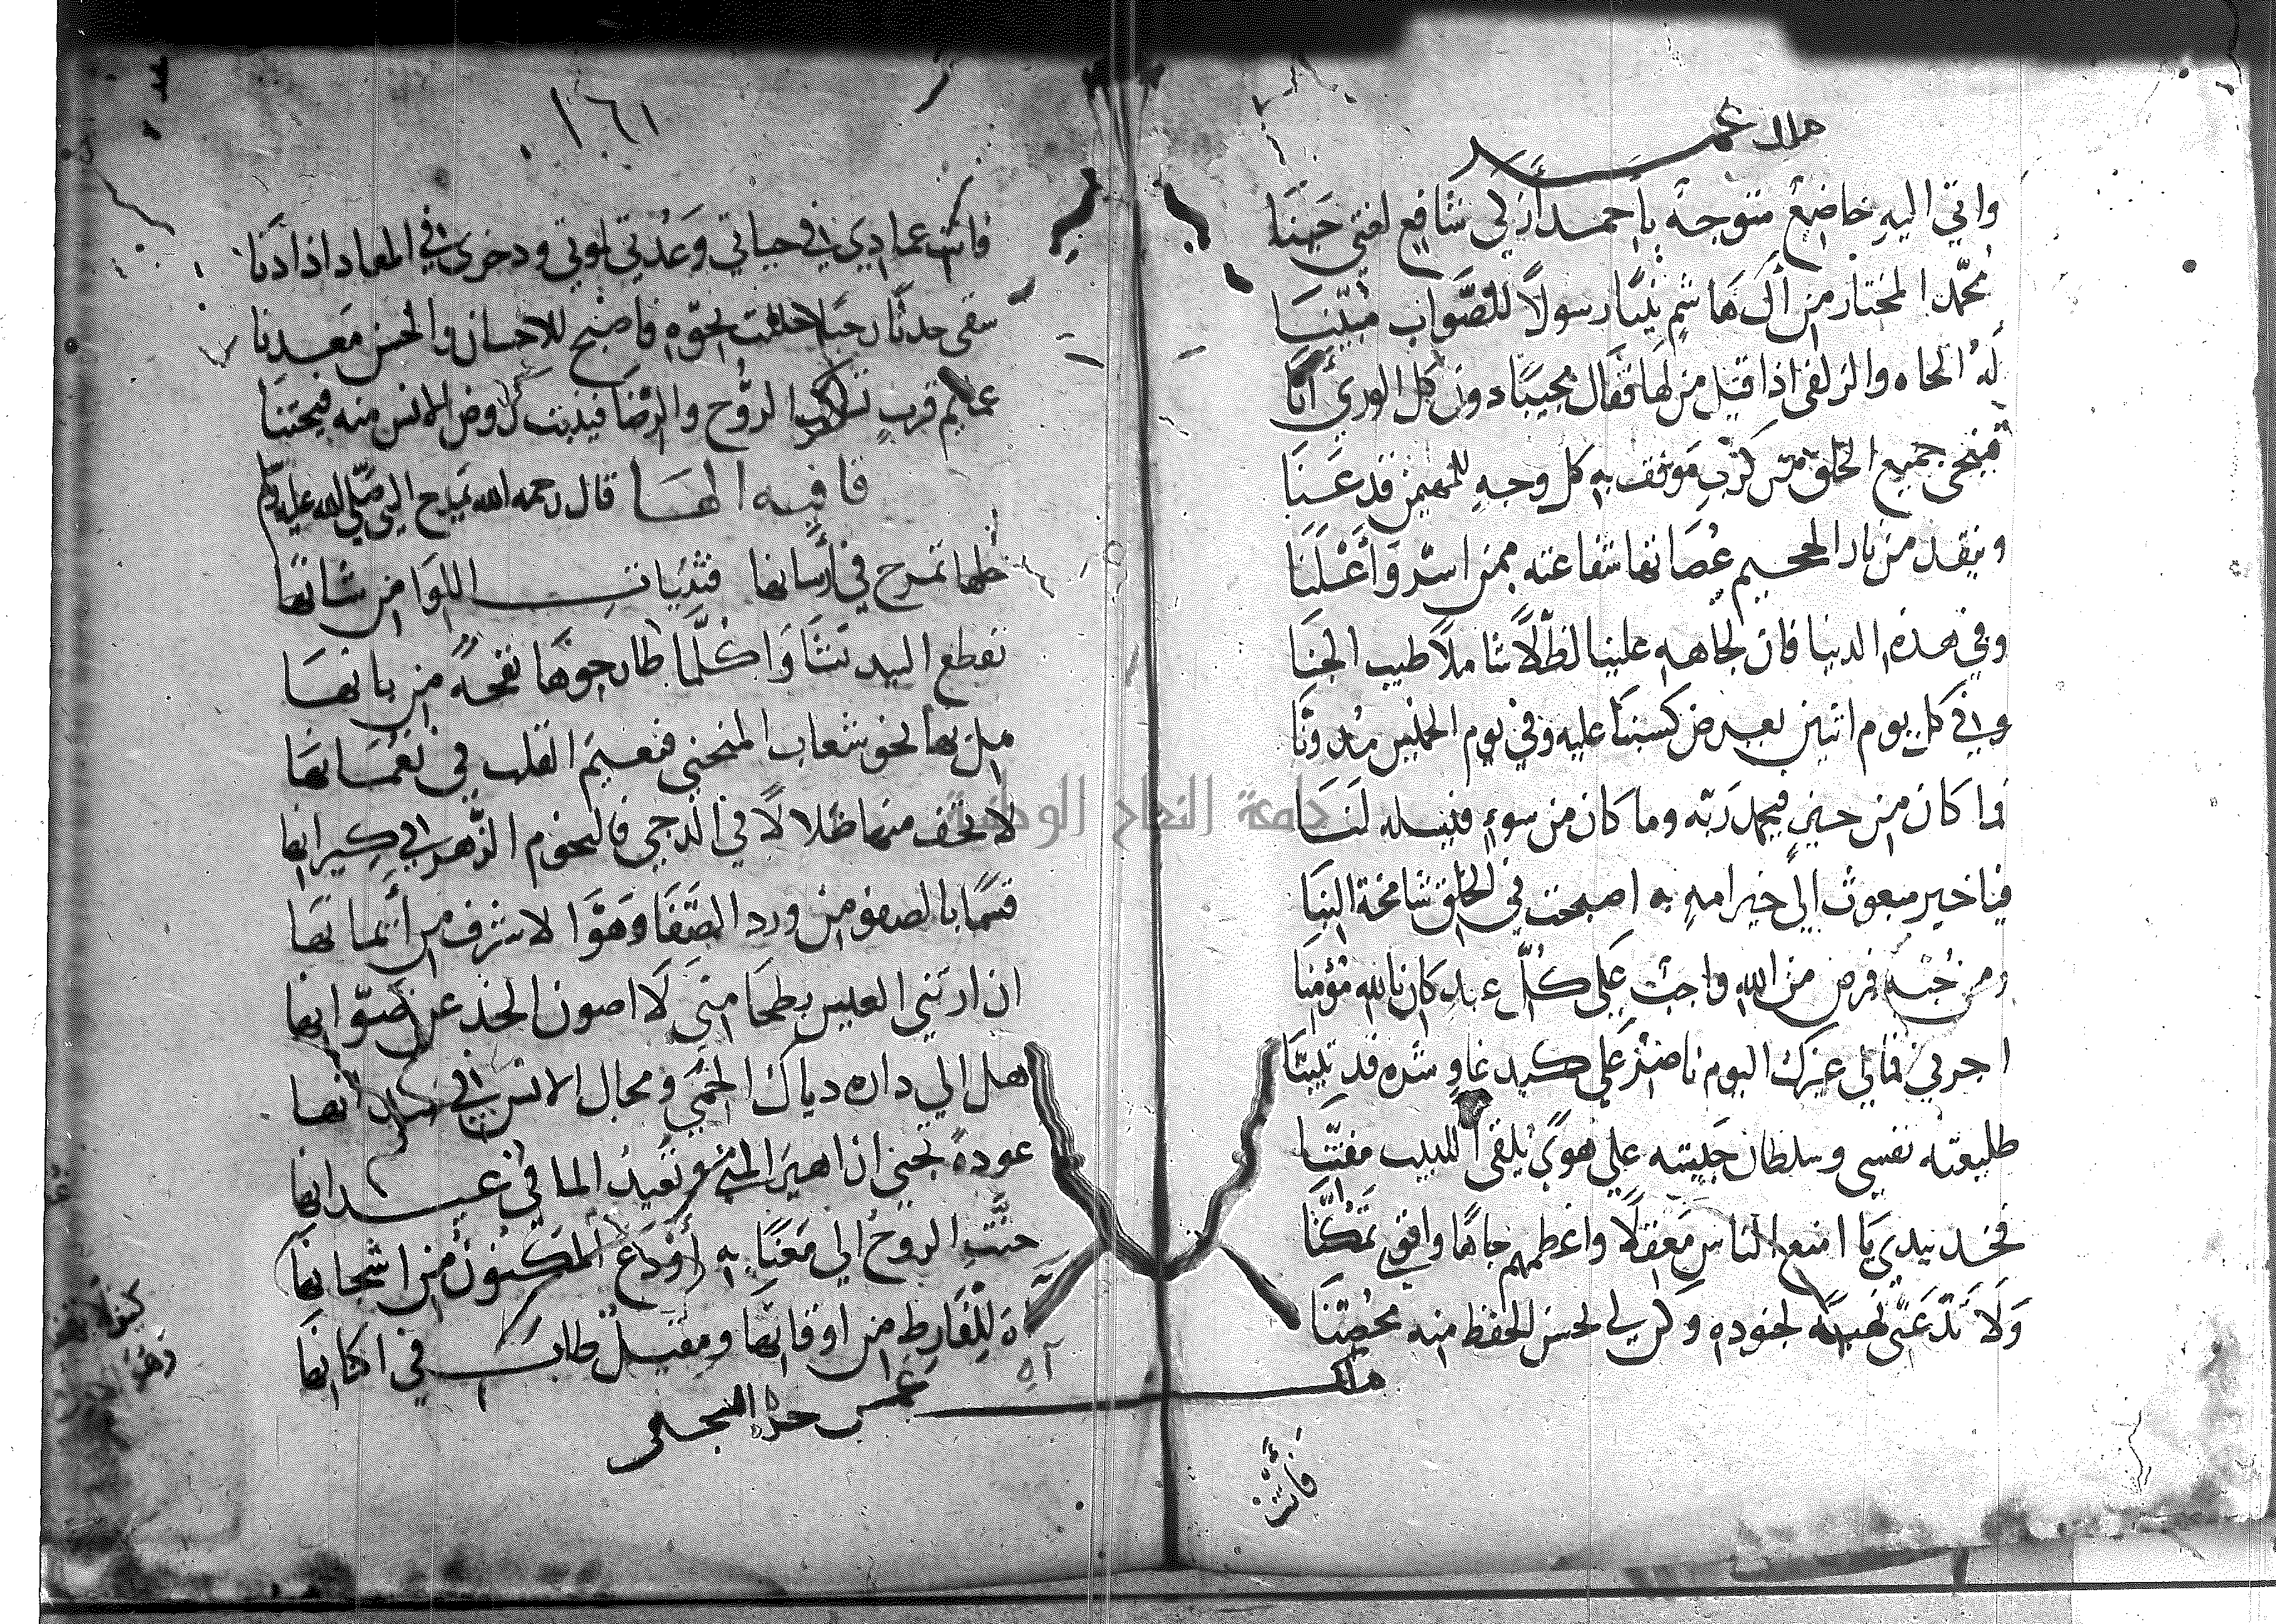 ملك عمر
واني اليه خاضع متوجه بأحمد أزكى شافع لفتى جنا
محمد المختار من آل هاشم نبيا رسولا للصواب مبينا
له الجاه والزلفى اذا قيل من لها فقال مجيبا دون كل الورى أنا
فينجى جميع الخلق من كرب موقف به كل وجه للمهيمن قد عنا
وينقد من نار الجحيم عصاتها شفاعته ممن اسر وأعلنا
وفي هذه الدنيا فان لجاهه علينا لظلا شاملا طيب الجنا
وفي كل يوم اثنين يعرض كسبنا عليه وفي يوم الخميس مدونا
فما كان من حسن فيحمد ربه وما كان من سوء فيسله لنا
فيا خير مبعوث الى خير امه به اصبحت في الخلق شامخة البنا
ومن حبه فرض من الله واجب على كل عبد كان بالله مؤمنا
اجرني فمالي غيرك اليوم ناصر على كيد غاو شره قد تبينا
طليعته نفسي وسلطان جيشه على هوى يلقى اللبيب مفتنا
فخد بيدي يا امنع الناس معقلا واعظمهم جاها واقوى تمكنا
ولا تدعني نهبة لجنوده وكن لي لحسن الحفظ منه محصنا
ملك
فأنت
١٦١
فانت عمادي في حياتي وعدتي لموتي ودخرى في المعاد اذا دنا
سقى جدثا رحبلا حللت بجوه فاصبح للاحسان والحسن معدنا
غمايم قرب تسكب الروح والرضا فينبت روض الانس منه فيجتنا
قافيه الها قال رحمه الله يمدح النبي صلى الله عليه وسلم
خلها تمرح في أرسانها فثنيات اللوا من شانها
تقطع البيد نشاوا كلما طار جوها نفحة من بانها
مل بها نحو شعاب المنحنى فنعيم القلب في نعمانها
لا تخف منها ظلالا في الدجى فالنجوم الزهر في كيرانها
قسما بالصفو من ورد الصفا وهوا لا شرف من أيمانها
ان ارتني العيس بطحا منى لا اصون الخد عن صوانها
هل الى داره دياك الحمى ومجال الانس في ميدانها
عودة تجنى ازاهير المنى وتعيد الما في عيدانها
حنت الروح الى مغنا به أودع المكنون من اشجانها
اه للفارط من اوقاتها ومقيل طاب في اكنانها
آه
عمر حمد النجمى